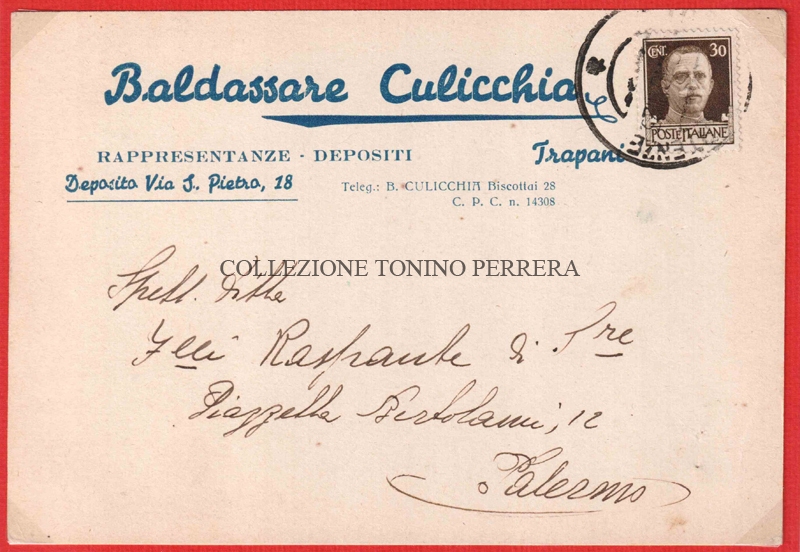 Baldassare Culicchia
CENT. 30
POSTE ITALIANE
RAPPRESENTANZE - DEPOSITI
Trapani
Deposito Via S. Pietro, 18
Teleg.: B. CULICCHIA Biscottai 28
C. P. C. n. 14308
COLLEZIONE TONINO PERRERA
Spett. Ditta
F.lli Raspante di S.re
Piazzetta Bertolami, 12
Palermo